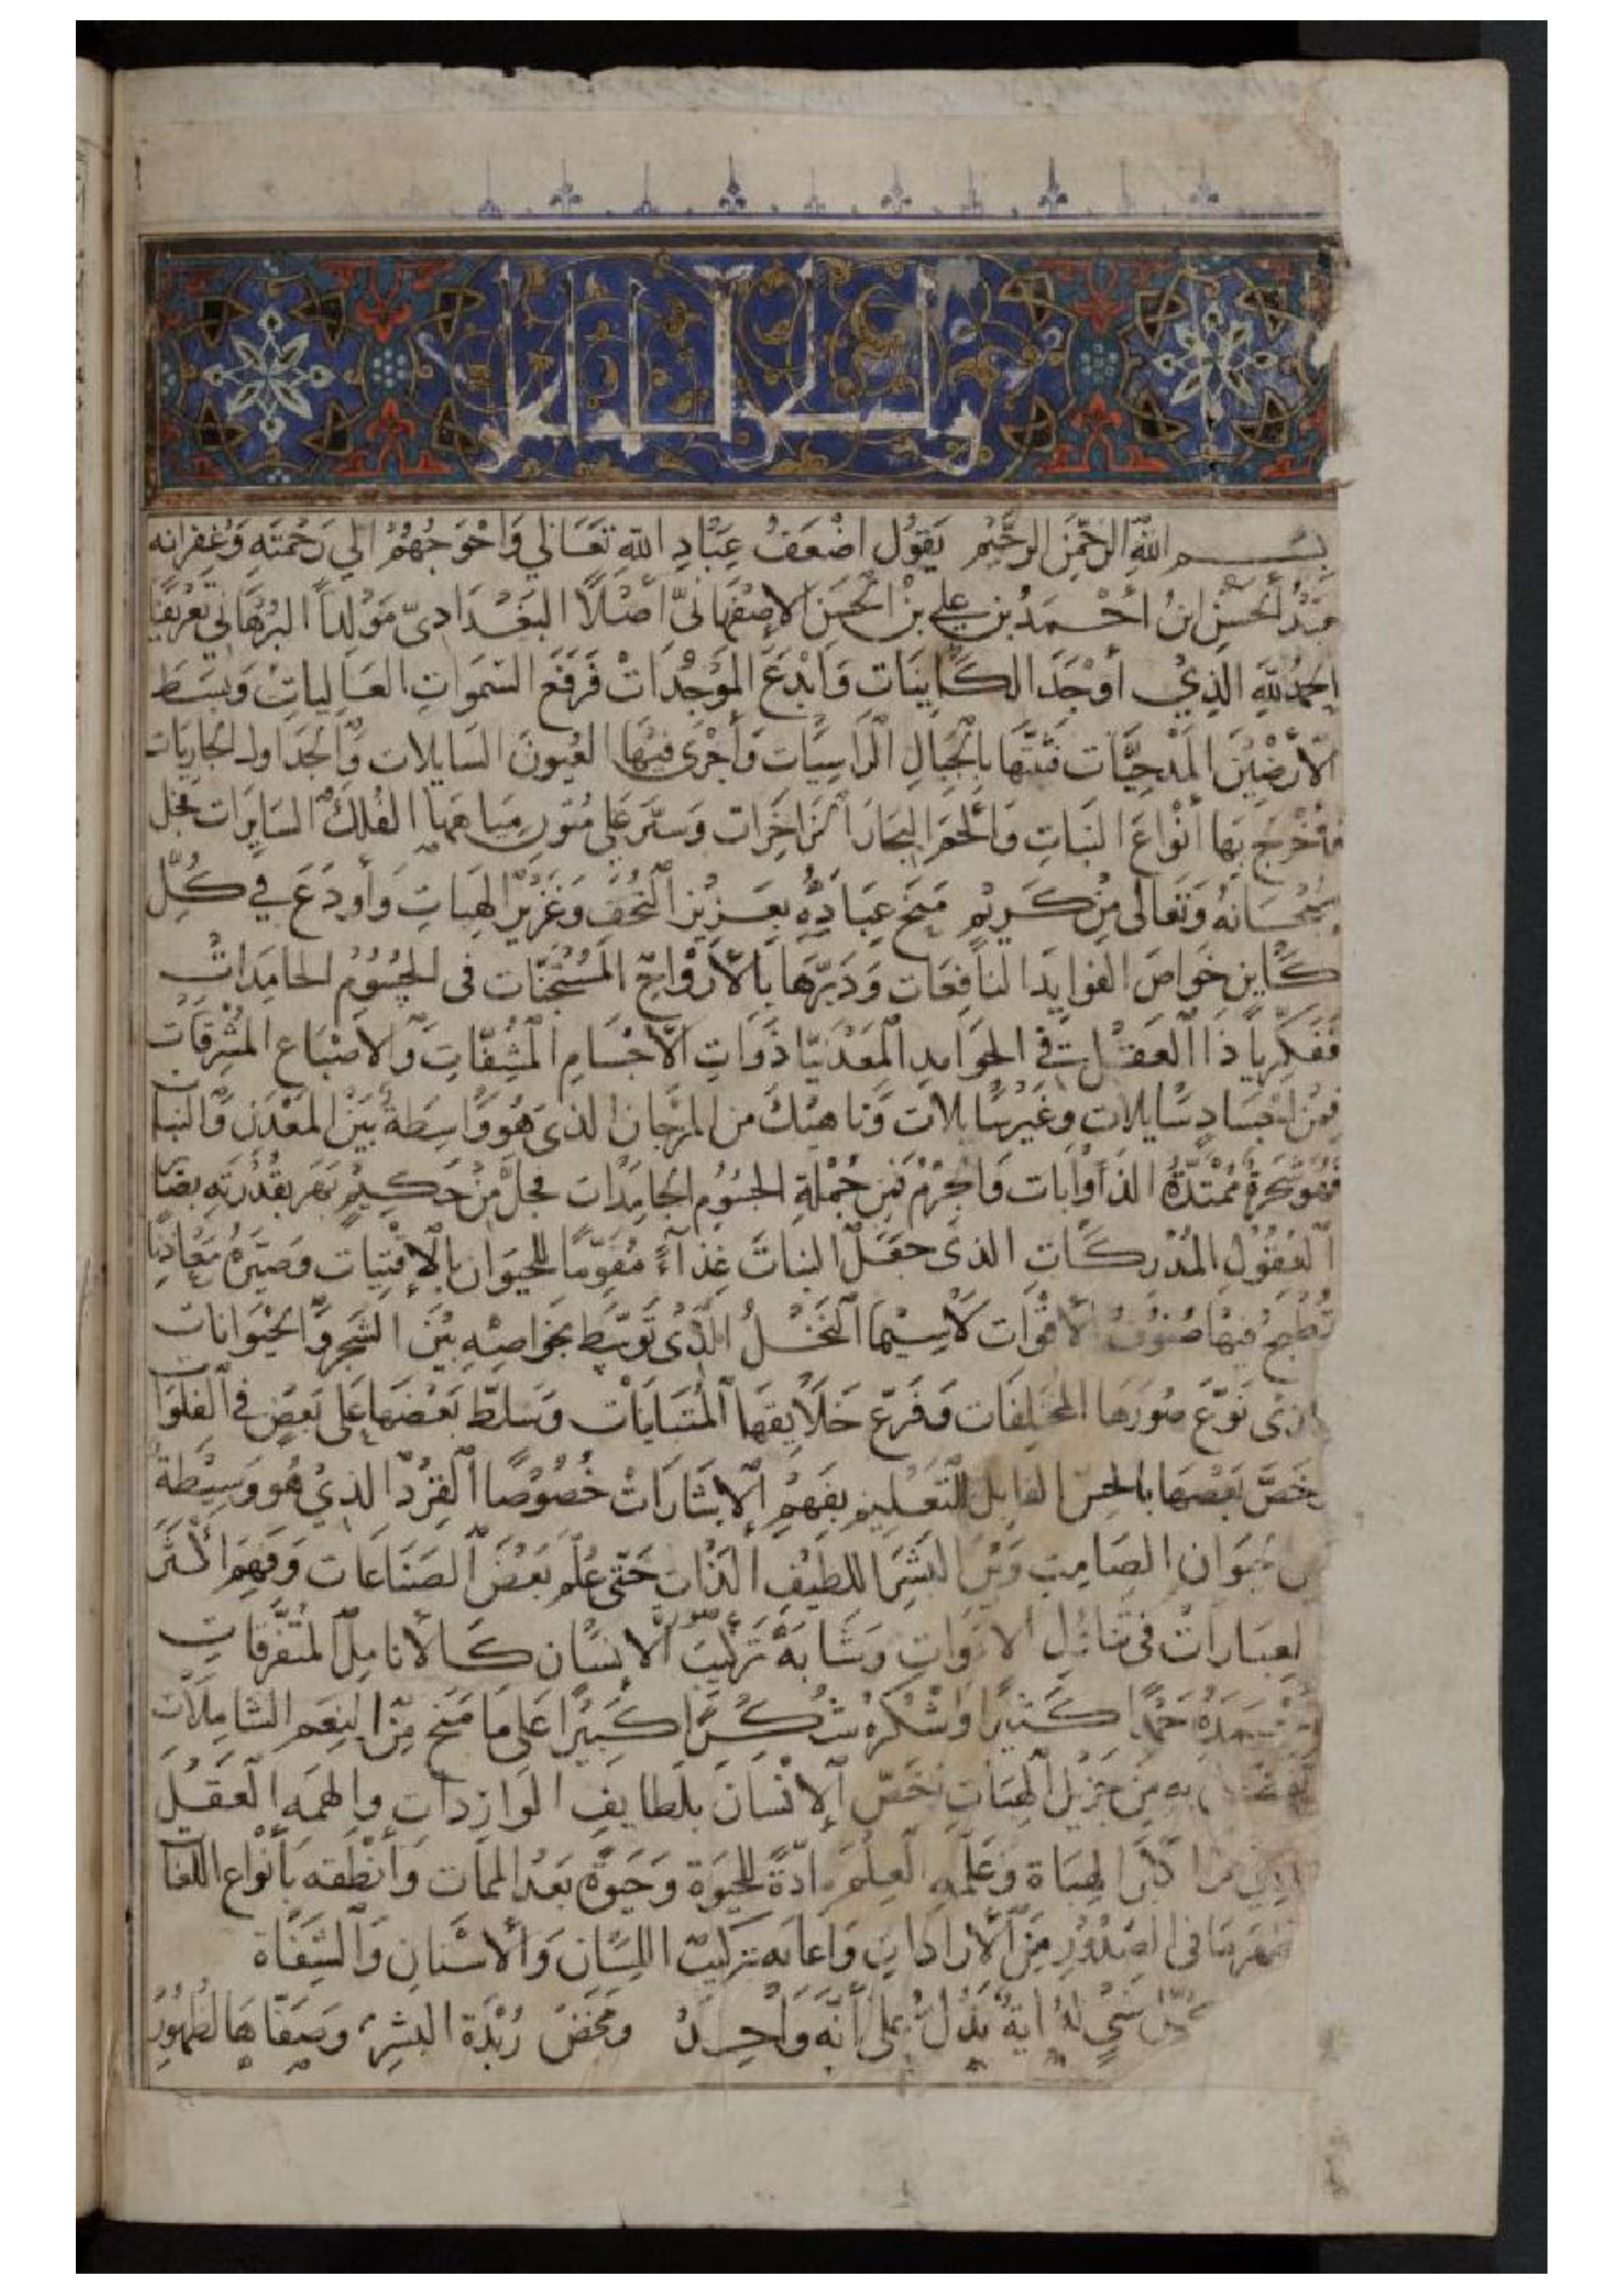 بسم الله الرحمن الرحيم يقول اضعف عباد الله تعالى واحوجهم الي رحمته وغفرانه
الحسن ابن احمد بن علي بن الحسن الإصفهاني أصلاً البغدادي مولداً البرهاني تعريفا
الحمد لله الذي أوجد الكاينات وابدع الموجدات فرفع السموات العاليات وبسط
الأرضين المدحيات فثبتها بالجبال الراسيات وأجرى فيها العيون السايلات والجداول الجاريات
فأخرج بها أنواع النبات والبحار الزاخرات وسير على متون مياهها الفلك السايرات فجل
سبحانه وتعالى من كريم منح عباده بعزيز التحف وغزير الهبات وأودع في كل
كاين خواص الفوايد النافعات ودبرها بالأرواح المستجنات فى الجسوم الجامدات
ففكر يا ذا العقل في الجوامد المعدنيا ذوات الأجسام المشفات والاصباغ المشرقات
فمن اجساد سايلات وغير سايلات وناهيك من المرجان الذى هو واسطة بين المعدن والنبا
فهو شجرة ممتدة الذأوابات والجرم من جملة الجسوم الجامدات فجل من حكيم بهر بقدرته بضا
العقول المدركات الذى جعل النبات غذآءً مقوماً للحيوان بالإقتيات وصيره معادنا
تطبخ فيها صنوف الأقوات لاسيما النخل الذى توسط بخواصه بين الشجر والحيوانات
الذى نوع صورها المختلفات وفرع خلايقها المتباينات وسلط بعضها على بعض في الفلوات
وخص بعضها بالحس القابل للتعليم بفهم الإشارات خصوصا القرد الذي هو وسيطة
بين حيوان الصامت وبين البشر اللطيف الذات حتى علم بعض الصناعات وفهم اكثر
العبارات فى تناول الادوات وشابه تركيب الانسان كالأنامل المتفرقات
حمدا كثيرا واشكره شكرا كبيرا على ما منح من النعم الشاملات
به من جزيل الهبات خص الإنسان بلطايف الواردات والهمه العقل
الهباة وعلمه العلم مادة للحيوة وحيوة بعد الممات وأنطقه بأنواع اللغا
ما فى الصدور من الارادات واعانه بتركيب اللسان والأسنان والشفاة
كل شي له اية تدل على أنه واحد ومخض زبدة البشر وصفاها لظهور